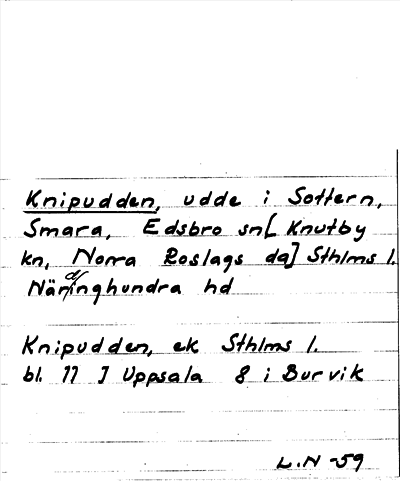 Knipudden, udde i Sottern,
Smara, Edsbro sn[ Knutby
kn, Norra Roslags dg] Sthlms l.
Närdinghundra hd
Knipudden, ek Sthlms l.
bl. 77 J Uppsala 8 i Burvik
L.N -59